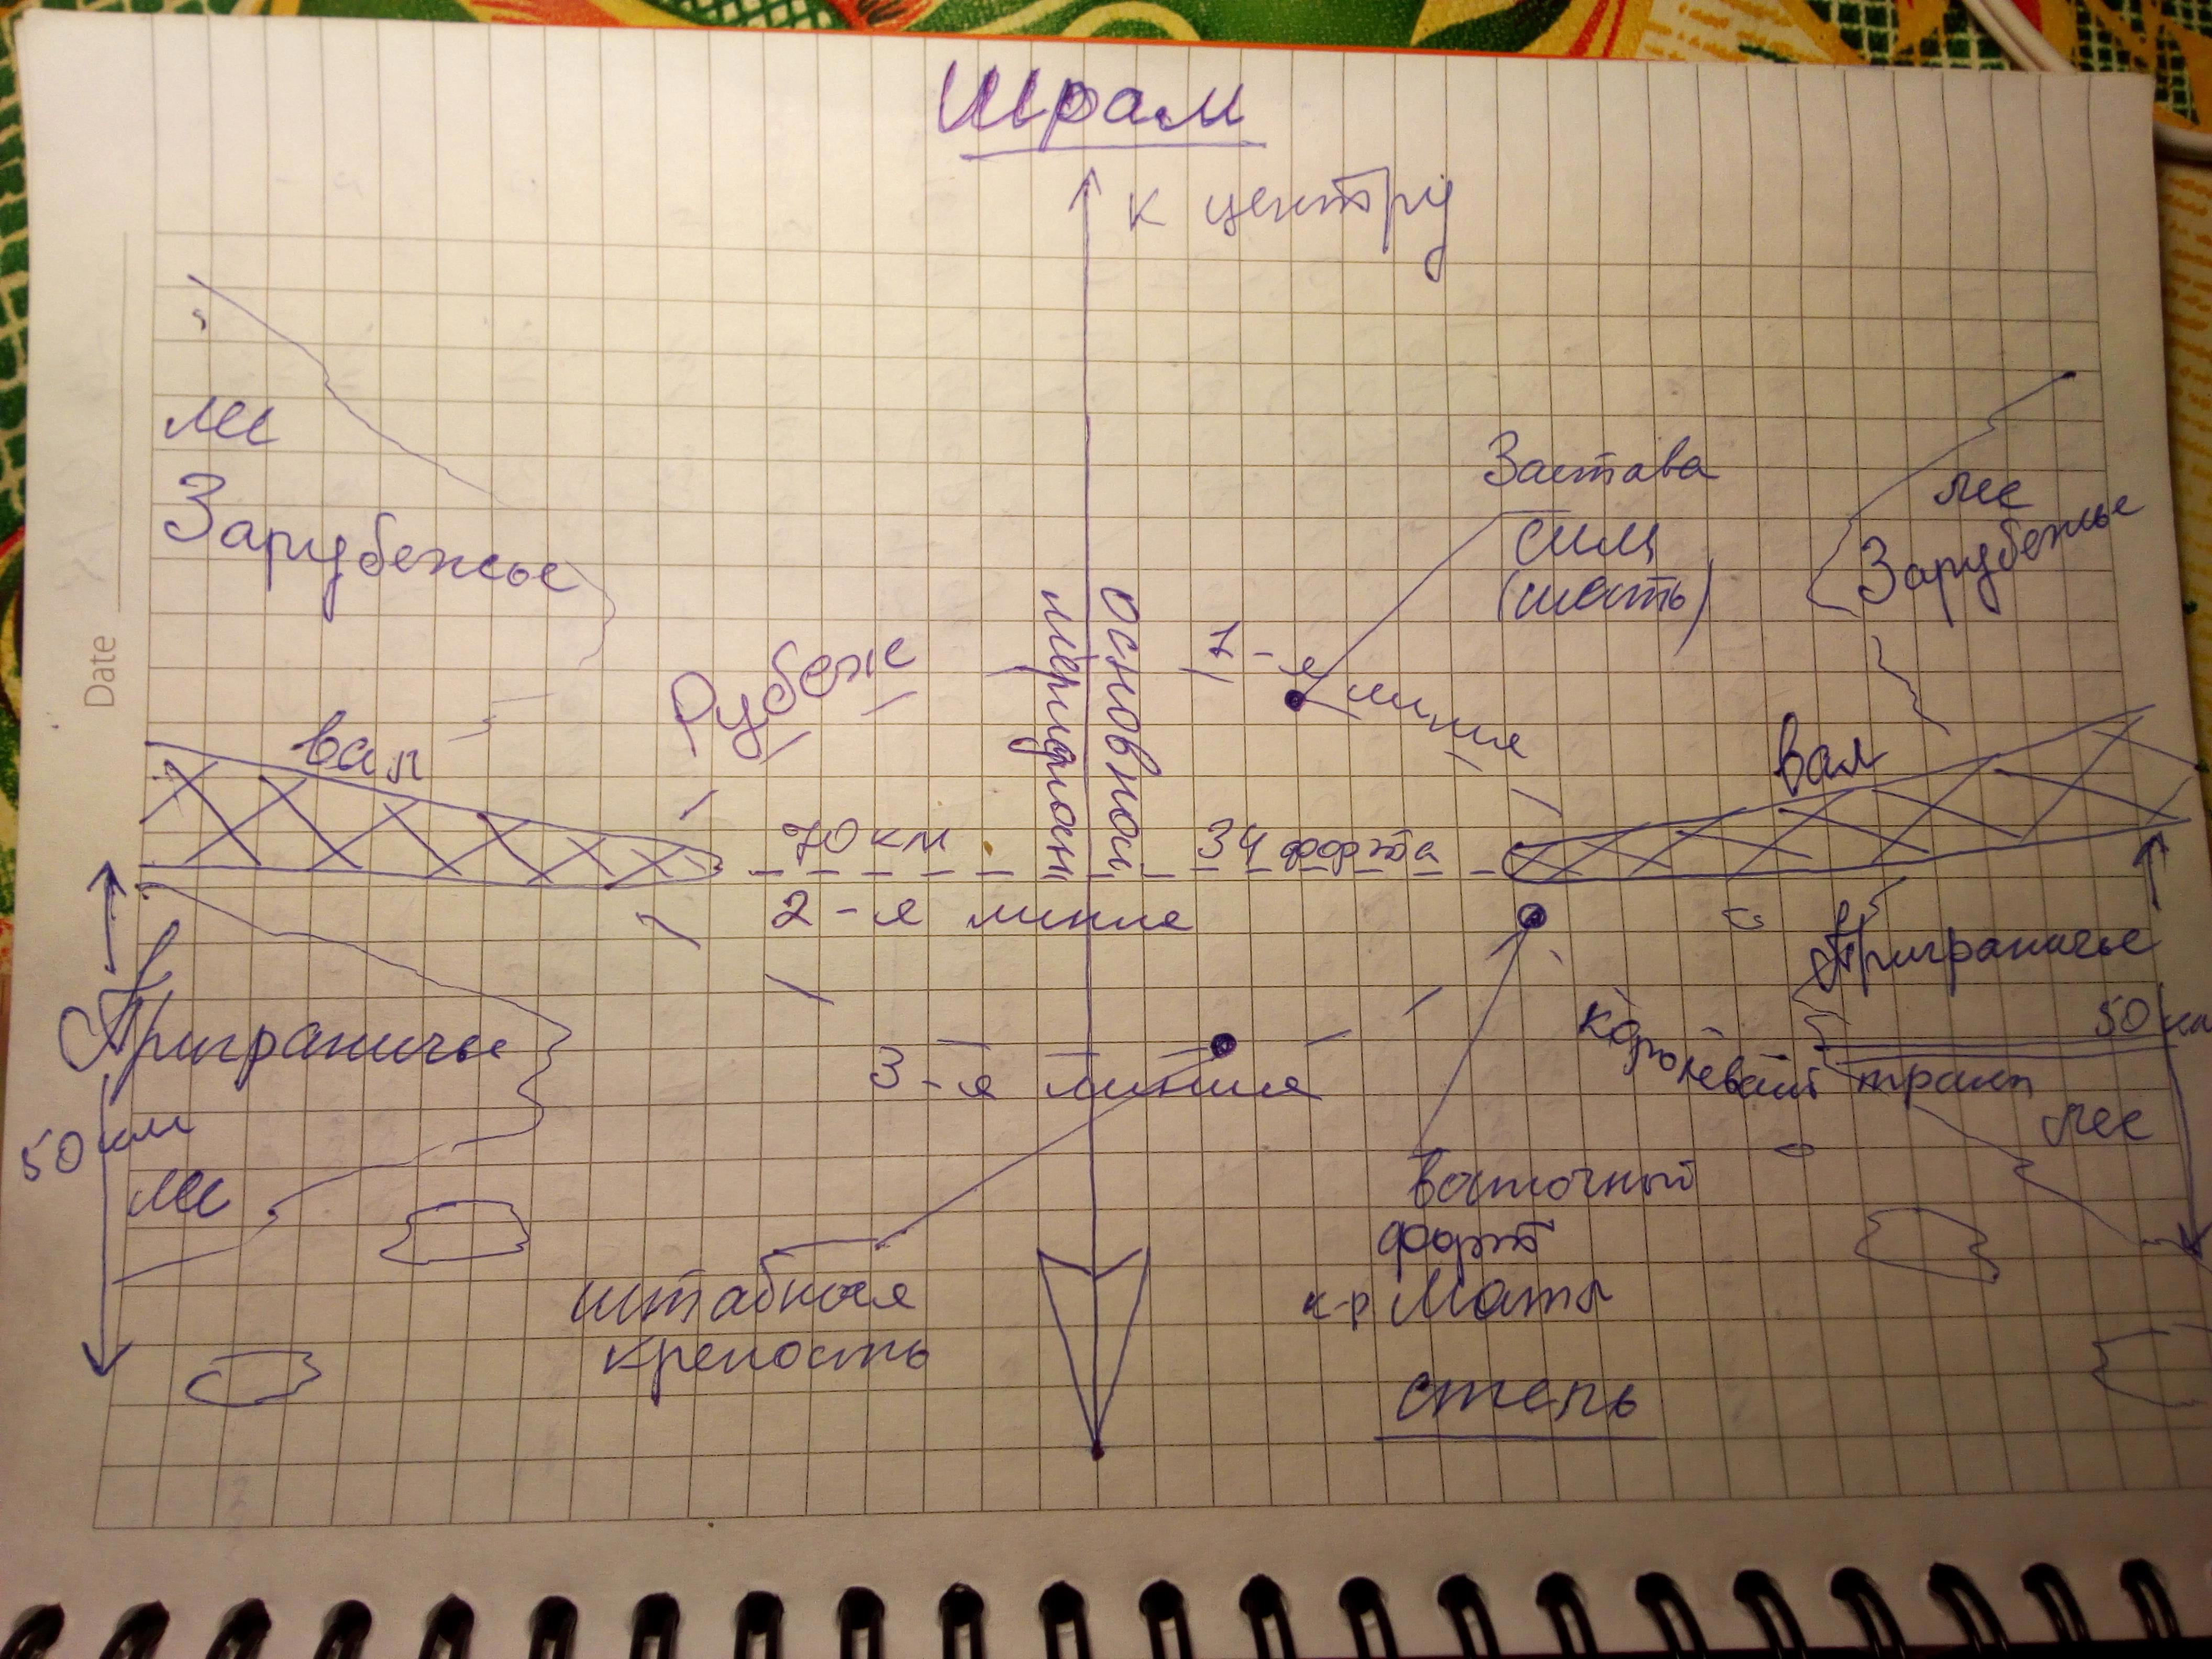 Шрам
к центру
лес
Зарубежье
Застава
сил
(шесть)
лес
Зарубежье
Рубеж
основной
меридиан
7-я линия
вал
вал
70 км
34 форта
2-я линия
Date
Приграничье
50 км
лес
3-я линия
Приграничье
50 км
королевский тракт
лес
восточный
форт
к-р Маты
штабная
крепость
степь